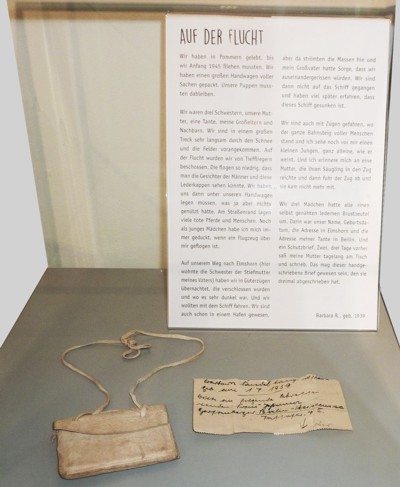 AUF DER FLUCHT
Wir haben in Pommern gelebt, bis
wir Anfang 1945 fliehen mussten. Wir
haben einen großen Handwagen voller
Sachen gepackt. Unsere Puppen muss-
ten dableiben.
Wir waren drei Schwestern, unsere Mut-
ter, eine Tante, meine Großeltern und
Nachbarn. Wir sind in einem großen
Treck sehr langsam durch den Schnee
und die Felder vorangekommen. Auf
der Flucht wurden wir von Tieffliegern
beschossen. Die flogen so niedrig, dass
man die Gesichter der Männer und diese
Lederkappen sehen konnte. Wir haben
uns dann unter unseren Handwagen
legen müssen, was ja aber nichts
genützt hätte. Am Straßenrand lagen
viele tote Pferde und Menschen. Noch
als junges Mädchen habe ich mich im-
mer geduckt, wenn ein Flugzeug über
mir geflogen ist.
Auf unserem Weg nach Elmshorn (hier
wohnte die Schwester der Stiefmutter
meines Vaters) haben wir in Güterzügen
übernachtet, die verschlossen wurden
und wo es sehr dunkel war. Und wir
wollten mit dem Schiff fahren. Wir sind
auch schon in einem Hafen gewesen,
aber da strömten die Massen hin und
mein Großvater hatte Sorge, dass wir
auseinandergerissen würden. Wir sind
dann nicht auf das Schiff gegangen
und haben viel später erfahren, dass
dieses Schiff gesunken ist.
Wir sind auch mit Zügen gefahren, wo
der ganze Bahnsteig voller Menschen
stand und ich sehe noch vor mir einen
kleinen Jungen, ganz alleine, wie er
weint. Und ich erinnere mich an eine
Mutter, die ihren Säugling in den Zug
reichte und dann fuhr der Zug ab und
sie kam nicht mehr mit.
Wir drei Mädchen hatte alle einen
selbst genähten ledernen Brustbeutel
um. Darin war unser Name, Geburtsda-
tum, die Adresse in Elmshorn und die
Adresse meiner Tante in Berlin. Und
ein Schutzbrief. Zwei, drei Tage vorher
saß meine Mutter tagelang am Tisch
und schrieb. Das mag dieser handge-
schriebene Brief gewesen sein, den sie
dreimal abgeschrieben hat.
Barbara R., geb. 1939
geb. am 1.7.1939